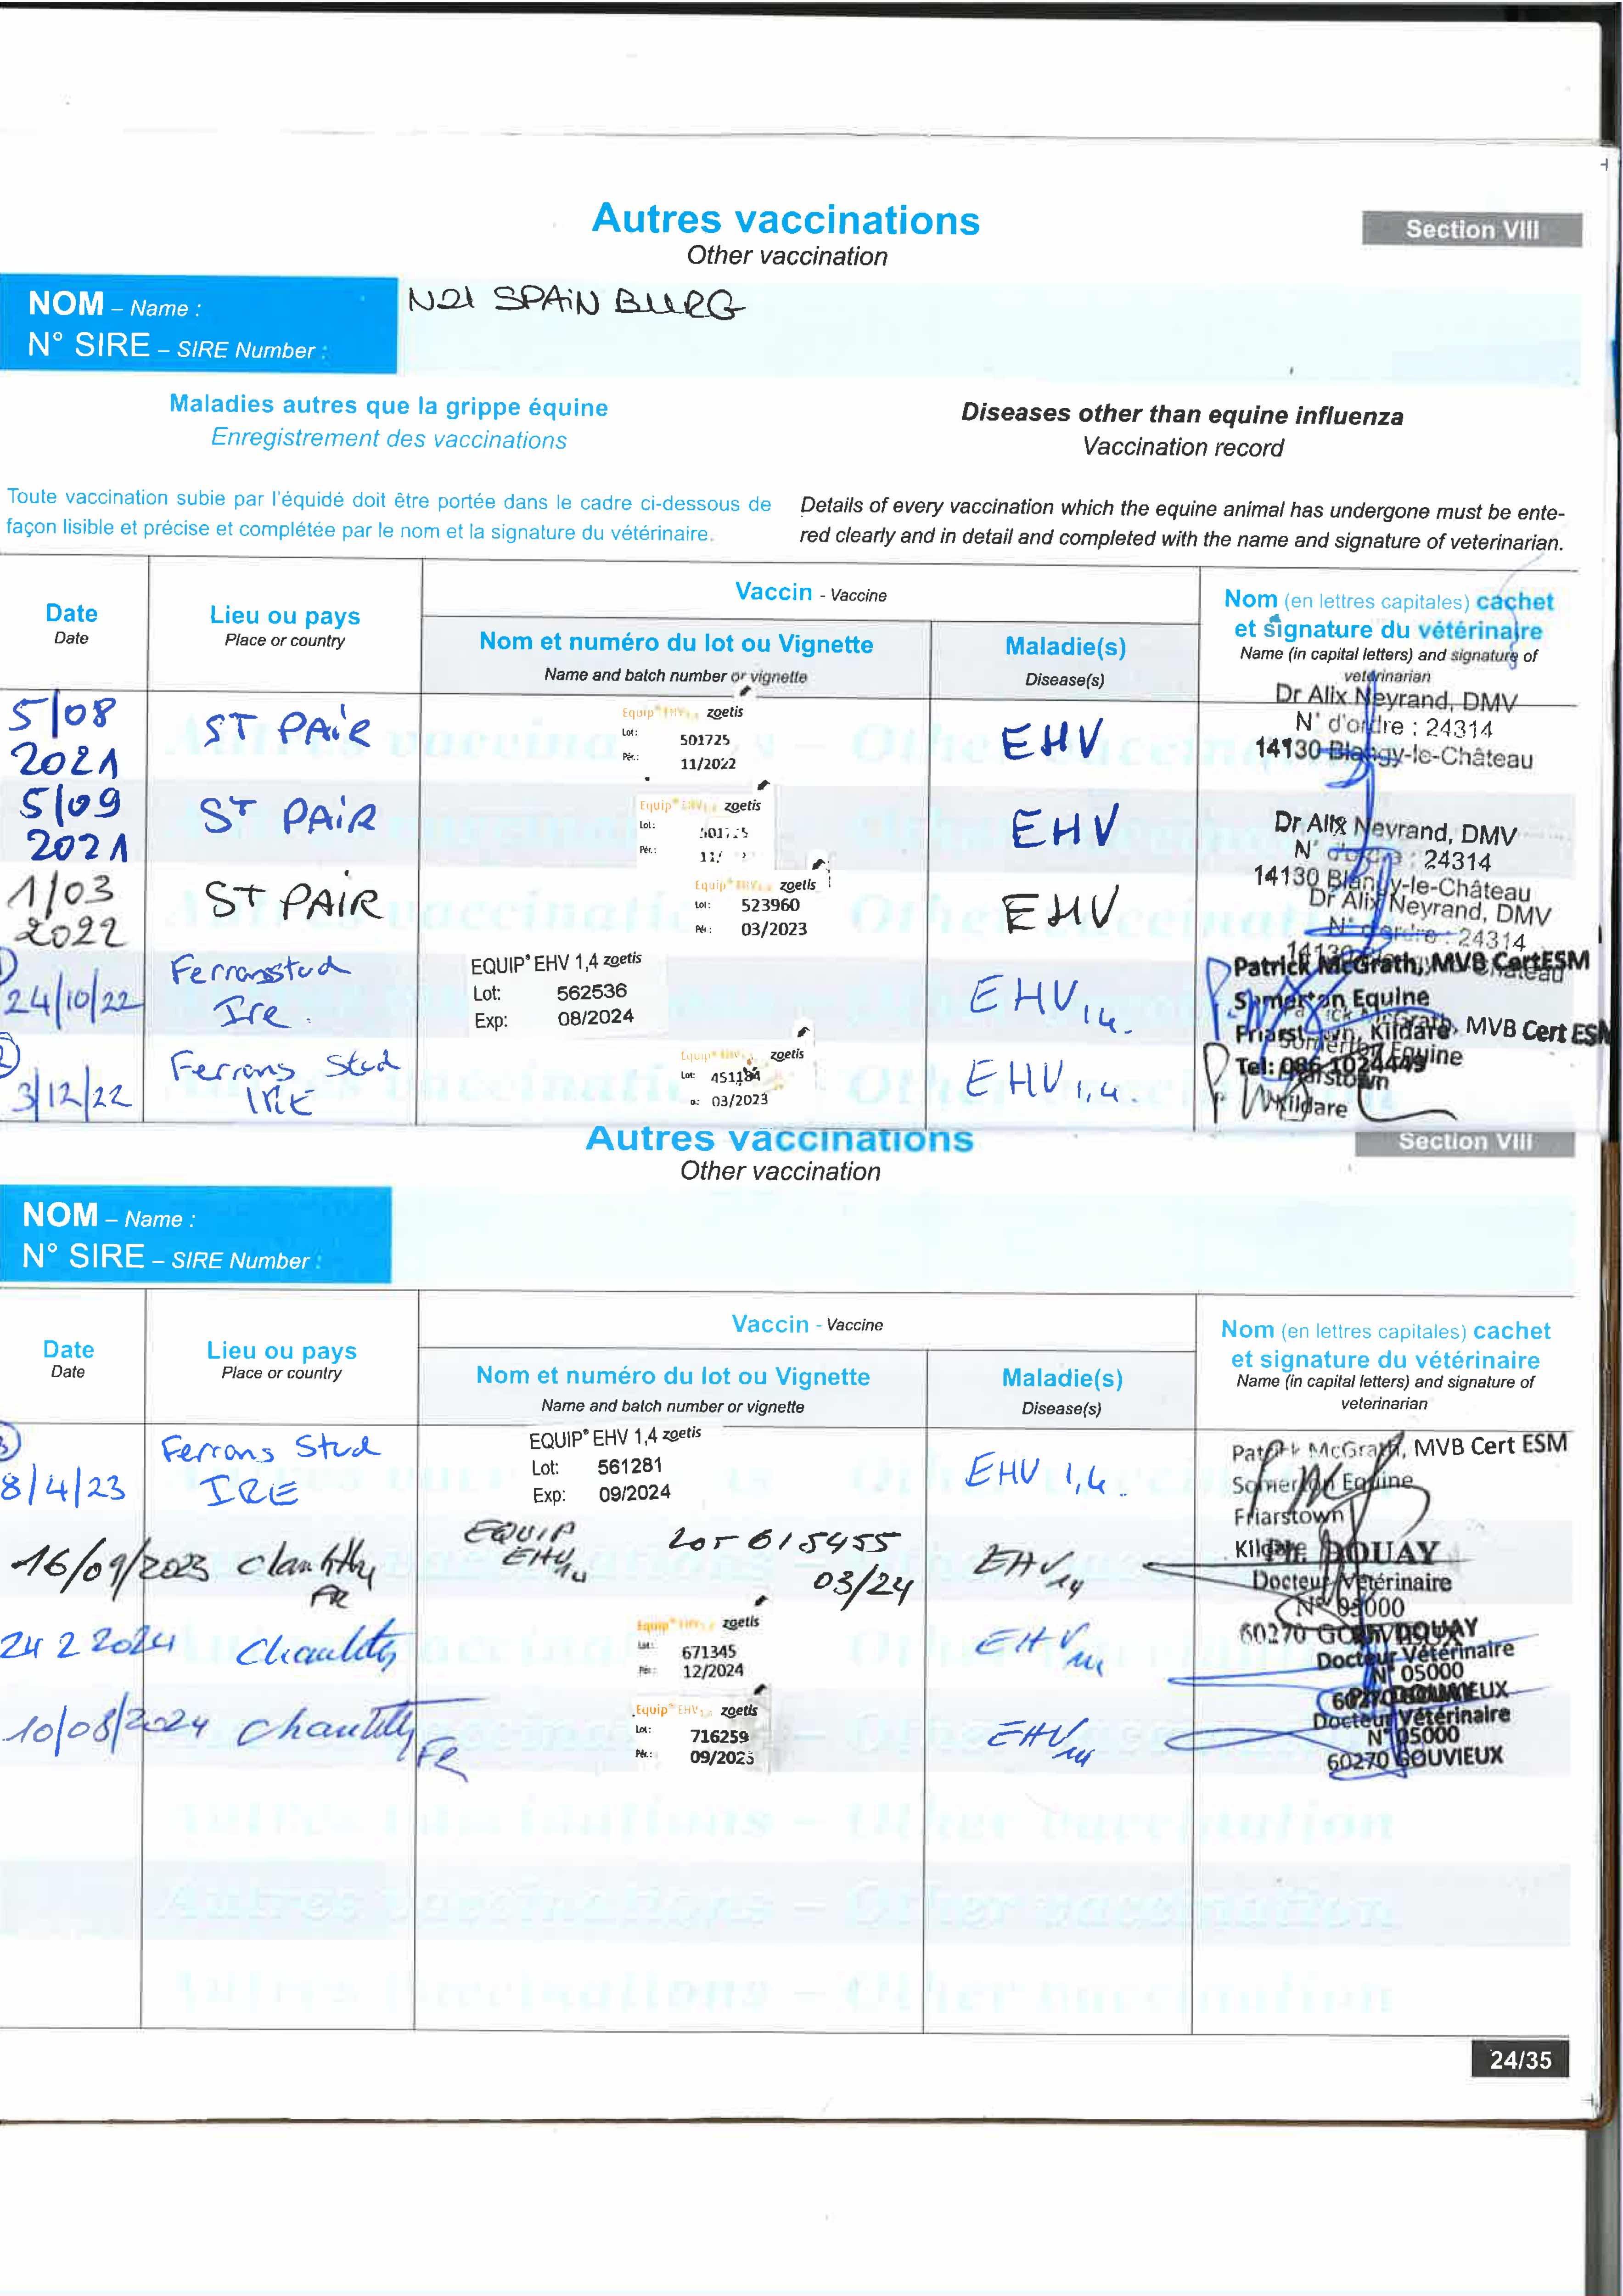 Autres vaccinations
Other vaccination
Section VIII
NOM – Name :
N21 SPAIN BURG
N° SIRE – SIRE Number :
Maladies autres que la grippe équine
Enregistrement des vaccinations
Diseases other than equine influenza
Vaccination record
Toute vaccination subie par l'équidé doit être portée dans le cadre ci-dessous de
façon lisible et précise et complétée par le nom et la signature du vétérinaire.
Details of every vaccination which the equine animal has undergone must be ente-
red clearly and in detail and completed with the name and signature of veterinarian.
Date
Date
Lieu ou pays
Place or country
Vaccin - Vaccine
Nom et numéro du lot ou Vignette
Name and batch number or vignette
Maladie(s)
Disease(s)
Nom (en lettres capitales) cachet
et signature du vétérinaire
Name (in capital letters) and signature of
veterinarian
5/08
2021
ST PAIR
Equip® EHV1,4 zoetis
Lot: 501725
Pér.: 11/2022
EHV
Dr Alix Neyrand, DMV
N° d'ordre : 24314
14130 Blangy-le-Château
5/09
2021
ST PAIR
Equip® EHV1,4 zoetis
Lot:
Pér.: 11/
EHV
Dr Alix Neyrand, DMV
N° d'ordre : 24314
14130 Blangy-le-Château
1/03
2022
ST PAIR
Equip® EHV1,4 zoetis
Lot: 523960
Pér.: 03/2023
EHV
Dr Alix Neyrand, DMV
N° d'ordre : 24314
14130
Château
24/10/22
Ferransstud
Ire.
EQUIP® EHV 1,4 zoetis
Lot: 562536
Exp: 08/2024
EHV 1,4.
Patrick McGrath, MVB CertESM
Somerton Equine
Friarstown, Kildare
Tel: 086 1024449
2
3/12/22
Ferrans Stud
IRE
Equip® EHV1,4 zoetis
Lot: 451184
03/2023
EHV 1,4.
Patrick McGrath, MVB Cert ESM
Somerton Equine
Friarstown
Kildare
Autres vaccinations
Other vaccination
Section VIII
NOM – Name :
N° SIRE – SIRE Number :
Date
Date
Lieu ou pays
Place or country
Vaccin - Vaccine
Nom et numéro du lot ou Vignette
Name and batch number or vignette
Maladie(s)
Disease(s)
Nom (en lettres capitales) cachet
et signature du vétérinaire
Name (in capital letters) and signature of
veterinarian
3
8/4/23
Ferrans Stud
IRE
EQUIP® EHV 1,4 zoetis
Lot: 561281
Exp: 09/2024
EHV 1,4.
Patrick McGrath, MVB Cert ESM
Somerton Equine
Friarstown
Kildare
16/09/2023
Chantilly
FR
EQUIP
EHV1,4
LOT 615455
03/24
EHV 1,4
Ph. DOUAY
Docteur Vétérinaire
N° 05000
60270 GOUVIEUX
24 2 2024
Chantilly
Equip® EHV1,4 zoetis
Lot: 671345
Pér.: 12/2024
EHV 1,4
DOUAY
Docteur Vétérinaire
N° 05000
60270 GOUVIEUX
10/08/2024
Chantilly
FR
Equip® EHV1,4 zoetis
Lot: 716259
Pér.: 09/2025
EHV 1,4
DOUAY
Docteur Vétérinaire
N° 05000
60270 GOUVIEUX
24/35